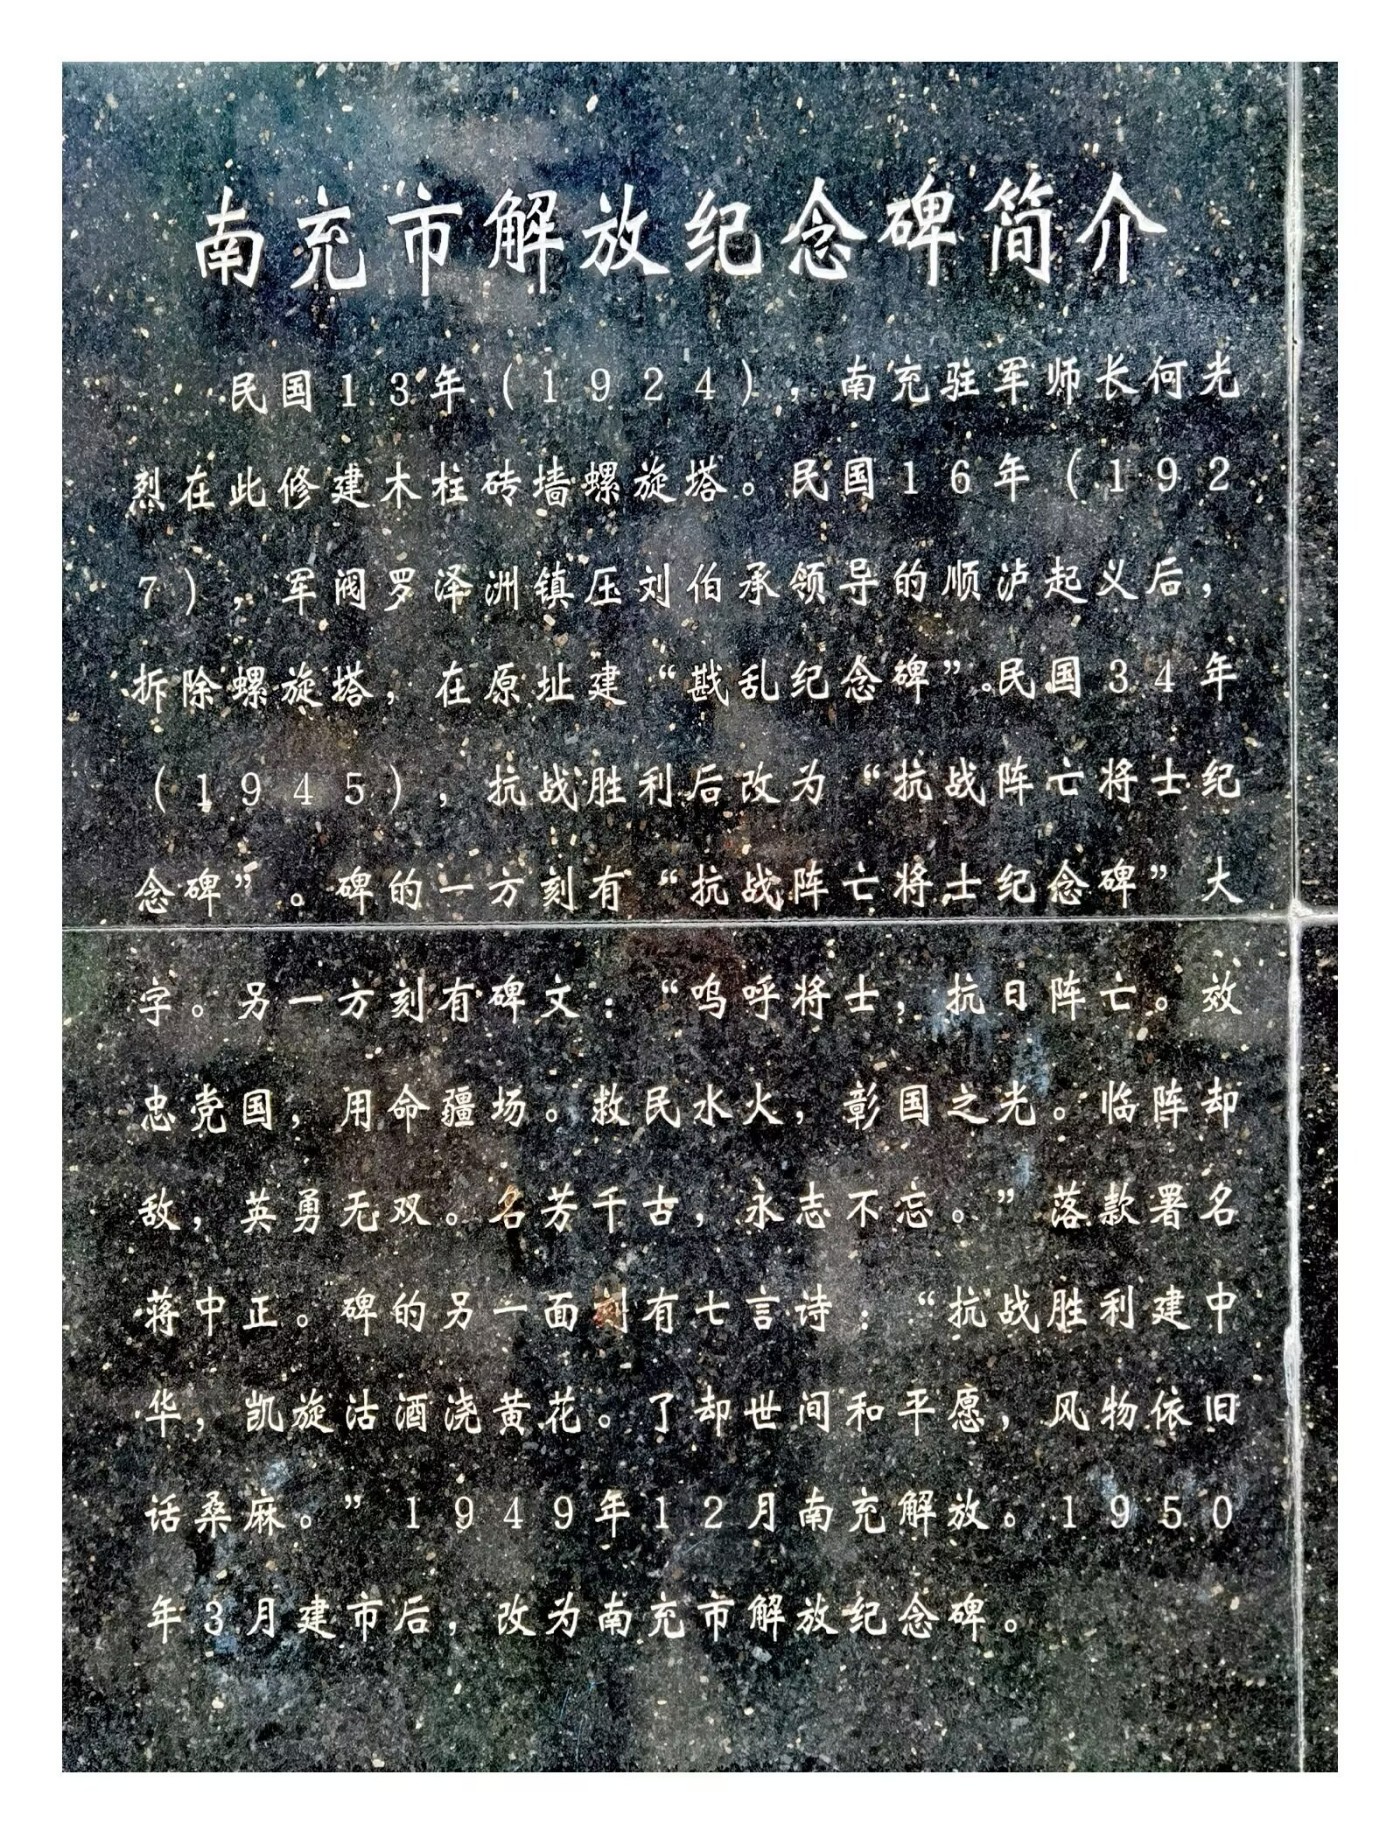 南充市解放纪念碑简介
民国13年(1924),南充驻军师长何光
烈在此修建木柱砖墙螺旋塔。民国16年(192
7),军阀罗泽洲镇压刘伯承领导的顺泸起义后,
拆除螺旋塔,在原址建“戡乱纪念碑”。民国34年
(1945),抗战胜利后改为“抗战阵亡将士纪
念碑”。碑的一方刻有“抗战阵亡将士纪念碑”大
字。另一方刻有碑文:“呜呼将士,抗日阵亡。效
忠党国,用命疆场。救民水火,彰国之光。临阵却
敌,英勇无双。名芳千古,永志不忘。”落款署名
蒋中正。碑的另一面刻有七言诗:“抗战胜利建中
华,凯旋沽酒浇黄花。了却世间和平愿,风物依旧
话桑麻。”1949年12月南充解放。1950
年3月建市后,改为南充市解放纪念碑。